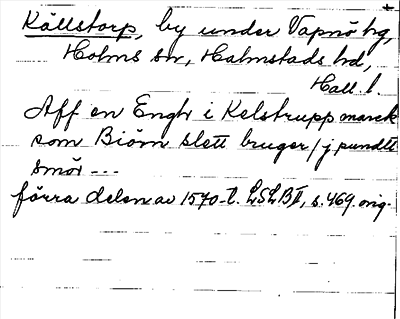 Källstorp, by under Vapnö hg,
Holms sn, Halmstads hd,
Hall. l.
Aff en Engh i Kelstrupp marck
som Biörn slett bruger / j pundtt
smör ---
förra delen av 1570-t. LSLB I, s. 469. orig.